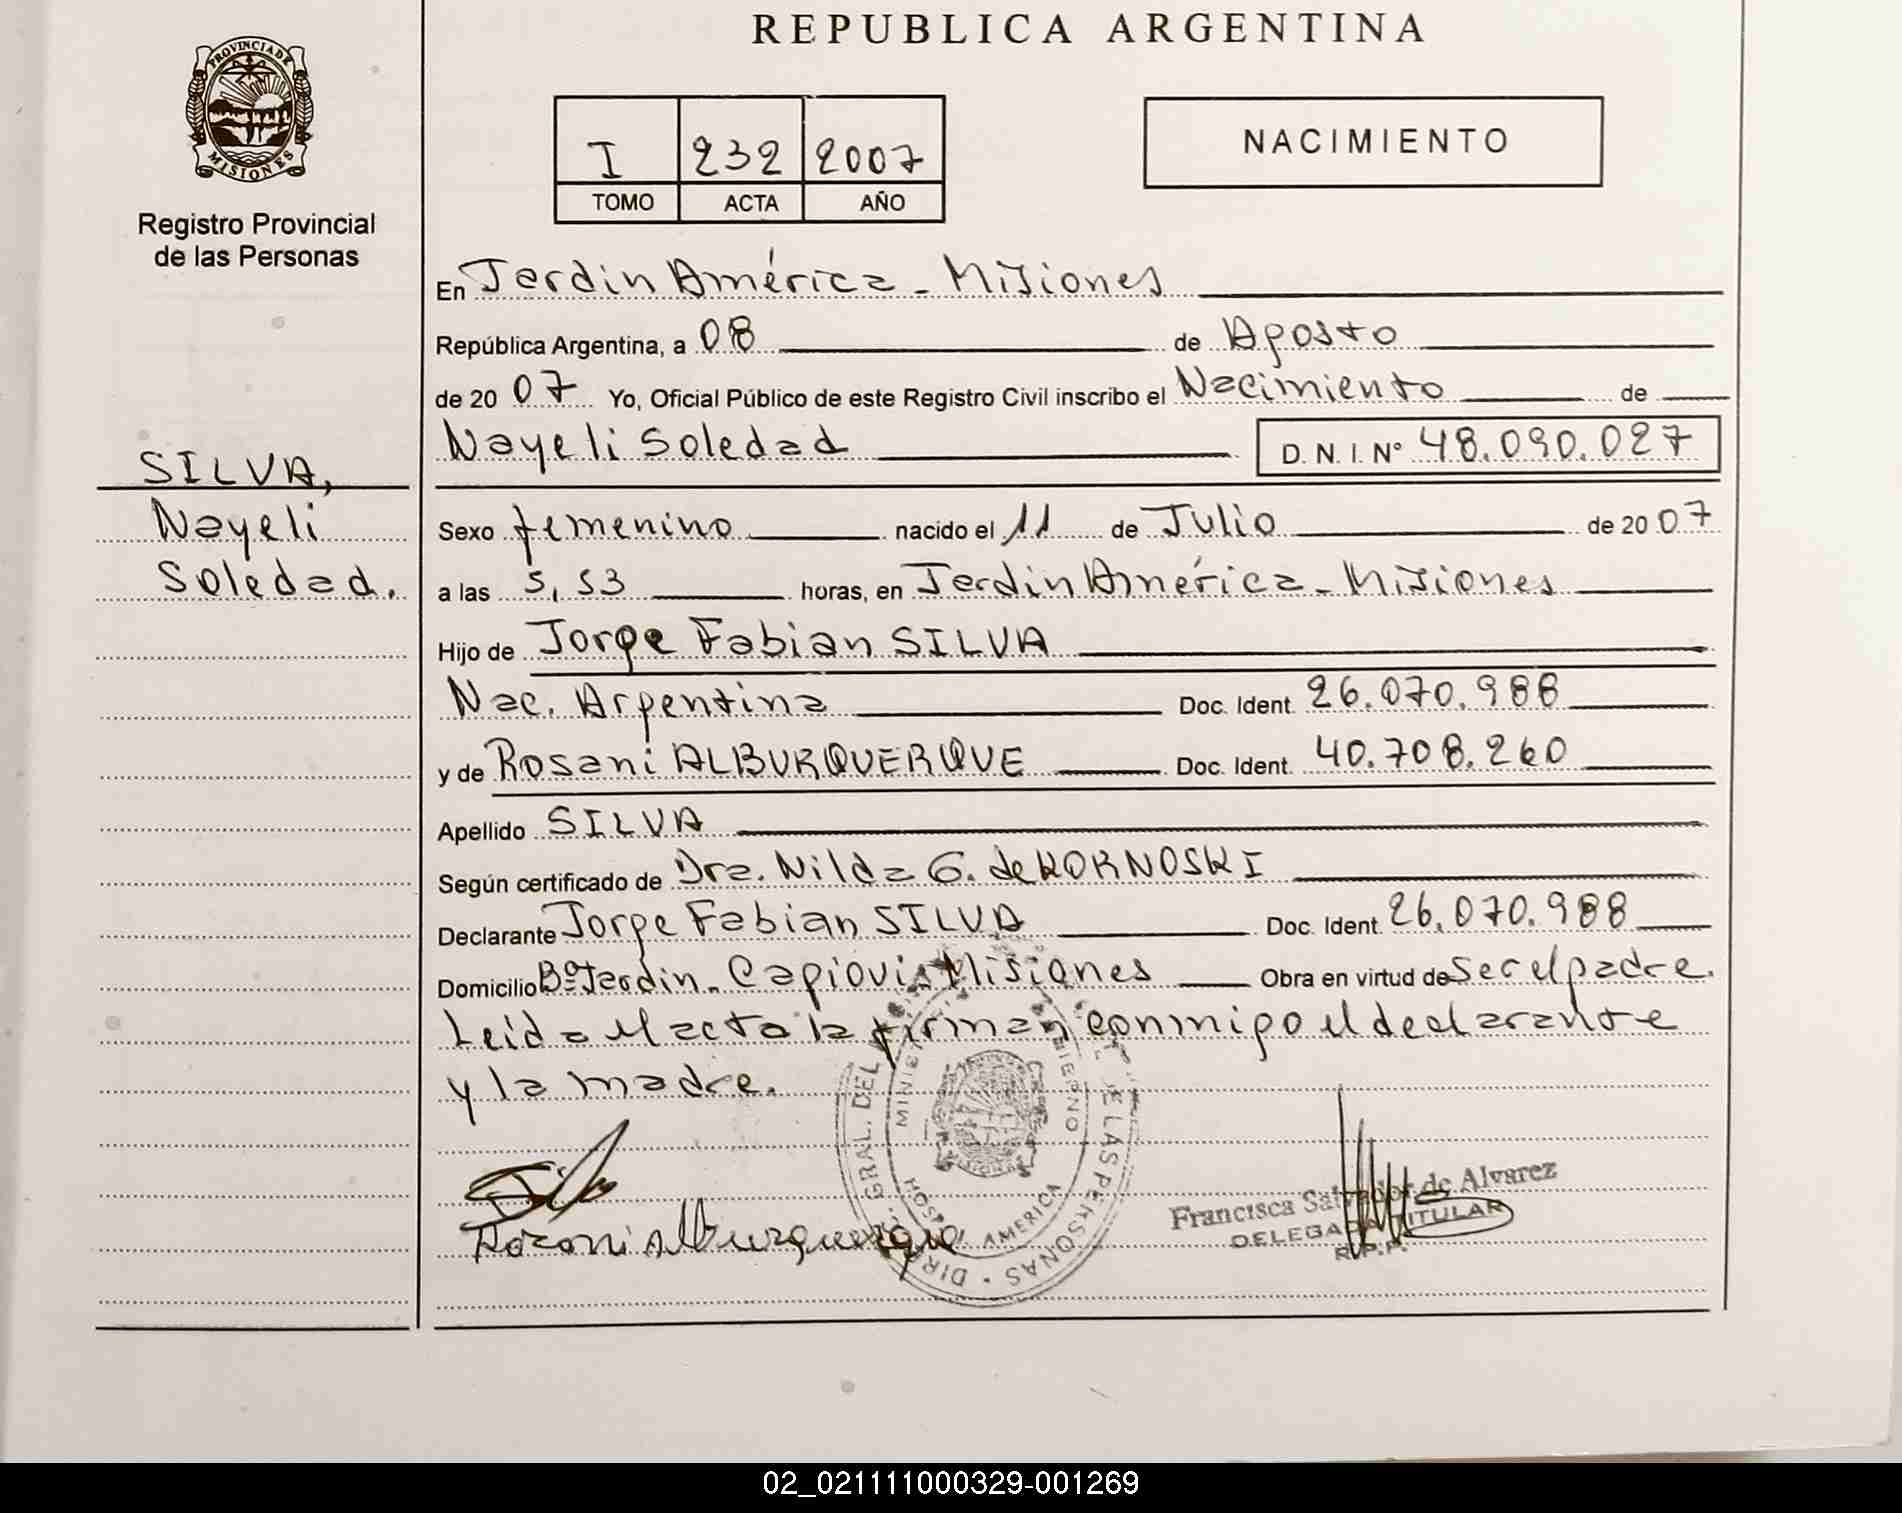 REPUBLICA ARGENTINA
PROVINCIA DE
MISIONES
Registro Provincial
de las Personas
I 232 2007
TOMO ACTA AÑO
NACIMIENTO
En Jardin América - Misiones
República Argentina, a 08 de Agosto
de 20 07 Yo, Oficial Público de este Registro Civil inscribo el Nacimiento de
Nayeli Soledad D. N. I. Nº 48.090.027
SILVA,
Nayeli
Soledad.
Sexo femenino nacido el 11 de Julio de 20 07
a las 5,53 horas, en Jardin América - Misiones
Hijo de Jorge Fabian SILVA
Nac. Argentina Doc. Ident. 26.070.988
y de Rosani ALBURQUERQUE Doc. Ident. 40.708.260
Apellido SILVA
Según certificado de Dra. Nilda G. de KORNOSKI
Declarante Jorge Fabian SILVA Doc. Ident. 26.070.988
Domicilio Bº Jardin - Capiovi - Misiones Obra en virtud de ser el padre.
Leida el acta la firman conmigo el declarante
y la madre.
Rozani Alburquerque
Francisca Salvador de Alvarez
DELEGADA TITULAR
R.P.P.
GRAL. DEL DE LAS PERSONAS
AMERICA
02_021111000329-001269